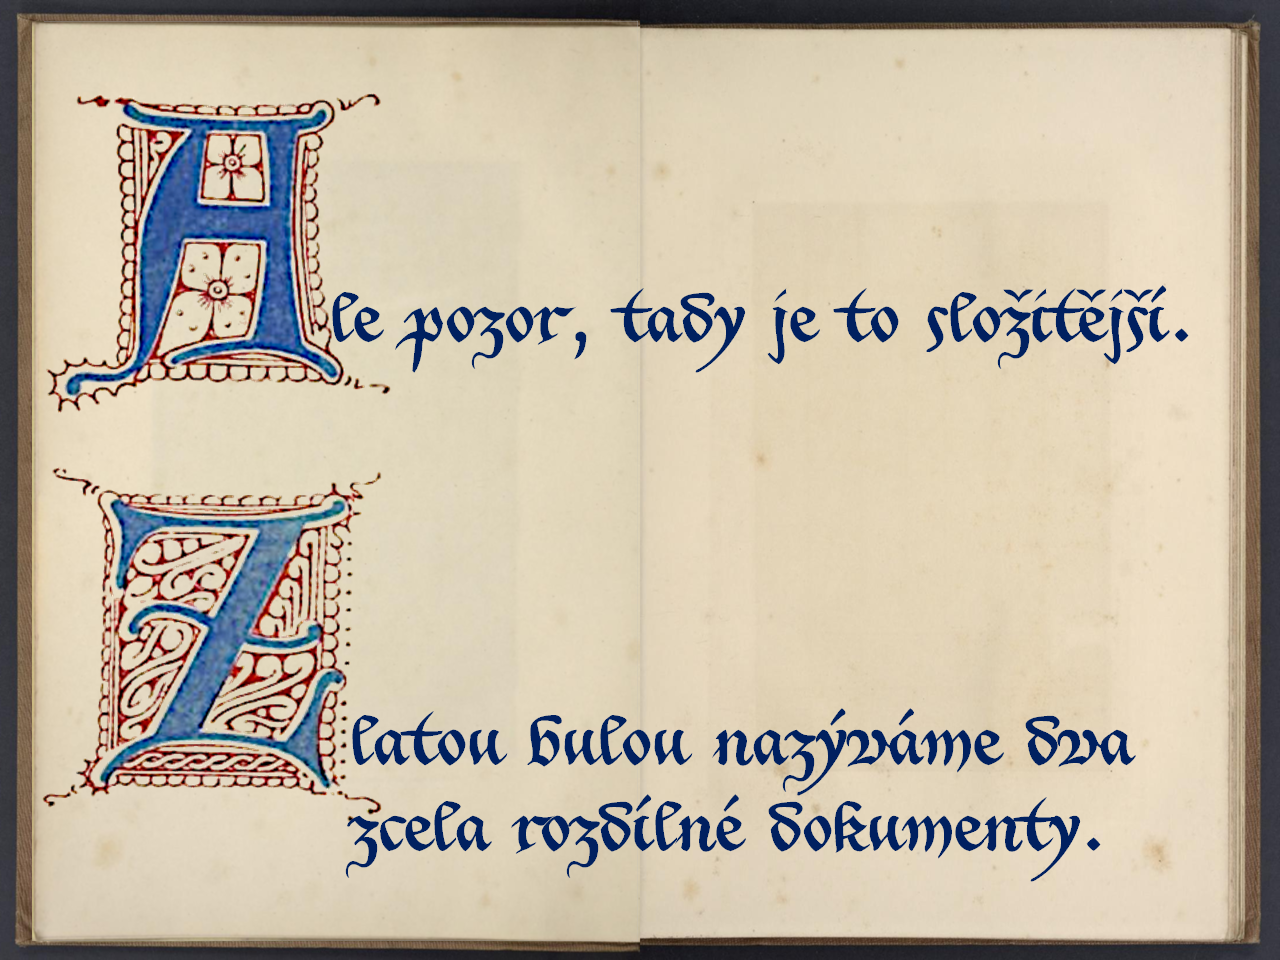 Ale pozor, tady je to složitější.
Zlatou bulou nazýváme dva
zcela rozdílné dokumenty.